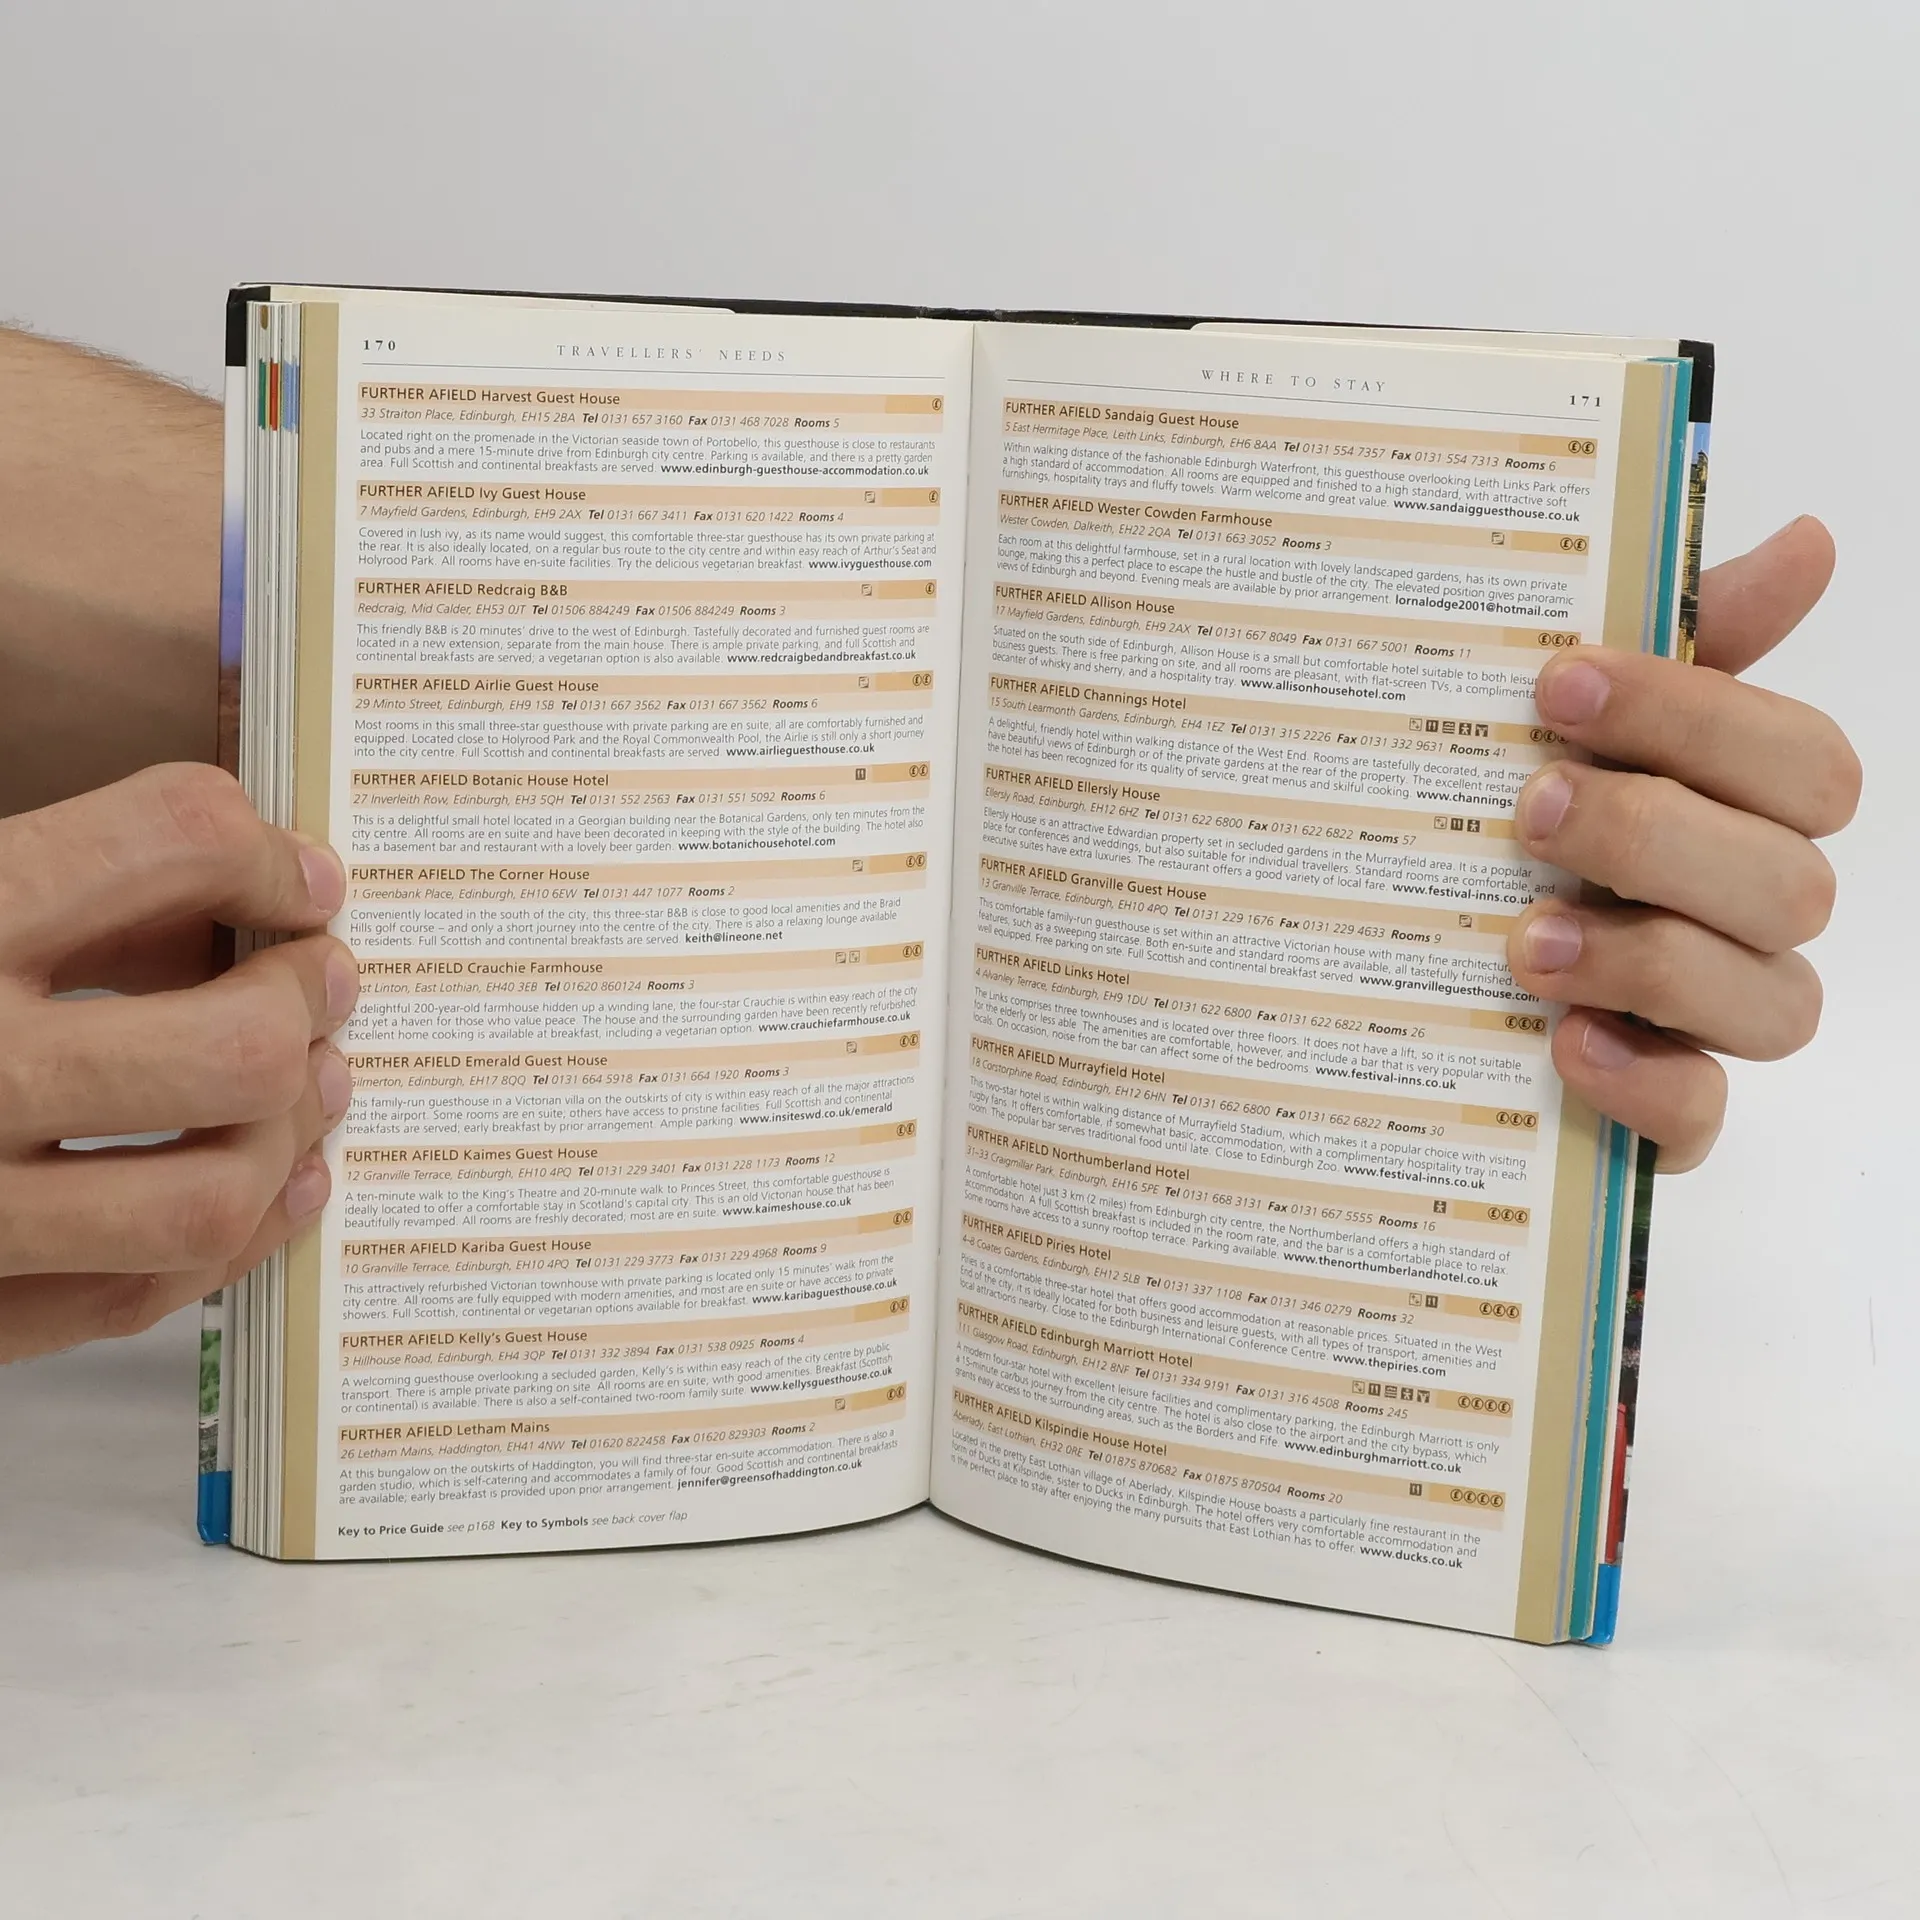 170
TRAVELLERS' NEEDS
FURTHER AFIELD Harvest Guest House
33 Straiton Place, Edinburgh, EH15 2BA Tel 0131 657 3160 Fax 0131 468 7028 Rooms 5
Located right on the promenade in the Victorian seaside town of Portobello, this guesthouse is close to restaurants
and pubs and a mere 15-minute drive from Edinburgh city centre. Parking is available, and there is a pretty garden
area. Full Scottish and continental breakfasts are served. www.edinburgh-guesthouse-accommodation.co.uk
FURTHER AFIELD Ivy Guest House
7 Mayfield Gardens, Edinburgh, EH9 2AX Tel 0131 667 3411 Fax 0131 620 1422 Rooms 4
Covered in lush ivy, as its name would suggest, this comfortable three-star guesthouse has its own private parking at
the rear. It is also ideally located, on a regular bus route to the city centre and within easy reach of Arthur's Seat and
Holyrood Park. All rooms have en-suite facilities. Try the delicious vegetarian breakfast. www.ivyguesthouse.com
FURTHER AFIELD Redcraig B&B
Redcraig, Mid Calder, EH53 0JT Tel 01506 884249 Fax 01506 884249 Rooms 3
This friendly B&B is 20 minutes' drive to the west of Edinburgh. Tastefully decorated and furnished guest rooms are
located in a new extension, separate from the main house. There is ample private parking, and full Scottish and
continental breakfasts are served; a vegetarian option is also available. www.redcraigbedandbreakfast.co.uk
FURTHER AFIELD Airlie Guest House
29 Minto Street, Edinburgh, EH9 1SB Tel 0131 667 3562 Fax 0131 667 3562 Rooms 6
Most rooms in this small three-star guesthouse with private parking are en suite; all are comfortably furnished and
equipped. Located close to Holyrood Park and the Royal Commonwealth Pool, the Airlie is still only a short journey
into the city centre. Full Scottish and continental breakfasts are served. www.airlieguesthouse.co.uk
FURTHER AFIELD Botanic House Hotel
27 Inverleith Row, Edinburgh, EH3 5QH Tel 0131 552 2563 Fax 0131 551 5092 Rooms 6
This is a delightful small hotel located in a Georgian building near the Botanical Gardens, only ten minutes from the
city centre. All rooms are en suite and have been decorated in keeping with the style of the building. The hotel also
has a basement bar and restaurant with a lovely beer garden. www.botanichousehotel.com
FURTHER AFIELD The Corner House
1 Greenbank Place, Edinburgh, EH10 6EW Tel 0131 447 1077 Rooms 2
Conveniently located in the south of the city, this three-star B&B is close to good local amenities and the Braid
Hills golf course – and only a short journey into the centre of the city. There is also a relaxing lounge available
to residents. Full Scottish and continental breakfasts are served. keith@lineone.net
URTHER AFIELD Crauchie Farmhouse
st Linton, East Lothian, EH40 3EB Tel 01620 860124 Rooms 3
delightful 200-year-old farmhouse hidden up a winding lane, the four-star Crauchie is within easy reach of the city
and yet a haven for those who value peace. The house and the surrounding garden have been recently refurbished.
Excellent home cooking is available at breakfast, including a vegetarian option. www.crauchiefarmhouse.co.uk
FURTHER AFIELD Emerald Guest House
Gilmerton, Edinburgh, EH17 8QQ Tel 0131 664 5918 Fax 0131 664 1920 Rooms 3
This family-run guesthouse in a Victorian villa on the outskirts of city is within easy reach of all the major attractions
and the airport. Some rooms are en suite; others have access to pristine facilities. Full Scottish and continental
breakfasts are served; early breakfast by prior arrangement. Ample parking. www.insiteswd.co.uk/emerald
FURTHER AFIELD Kaimes Guest House
12 Granville Terrace, Edinburgh, EH10 4PQ Tel 0131 229 3401 Fax 0131 228 1173 Rooms 12
A ten-minute walk to the King's Theatre and 20-minute walk to Princes Street, this comfortable guesthouse is
ideally located to offer a comfortable stay in Scotland's capital city. This is an old Victorian house that has been
beautifully revamped. All rooms are freshly decorated; most are en suite. www.kaimeshouse.co.uk
FURTHER AFIELD Kariba Guest House
10 Granville Terrace, Edinburgh, EH10 4PQ Tel 0131 229 3773 Fax 0131 229 4968 Rooms 9
This attractively refurbished Victorian townhouse with private parking is located only 15 minutes' walk from the
city centre. All rooms are fully equipped with modern amenities, and most are en suite or have access to private
showers. Full Scottish, continental or vegetarian options available for breakfast. www.karibaguesthouse.co.uk
FURTHER AFIELD Kelly's Guest House
3 Hillhouse Road, Edinburgh, EH4 3QP Tel 0131 332 3894 Fax 0131 538 0925 Rooms 4
A welcoming guesthouse overlooking a secluded garden, Kelly's is within easy reach of the city centre by public
transport. There is ample private parking on site. All rooms are en suite, with good amenities. Breakfast (Scottish
or continental) is available. There is also a self-contained two-room family suite. www.kellysguesthouse.co.uk
FURTHER AFIELD Letham Mains
26 Letham Mains, Haddington, EH41 4NW Tel 01620 822458 Fax 01620 829303 Rooms 2
At this bungalow on the outskirts of Haddington, you will find three-star en-suite accommodation. There is also a
garden studio, which is self-catering and accommodates a family of four. Good Scottish and continental breakfasts
are available; early breakfast is provided upon prior arrangement. jennifer@greensofhaddington.co.uk
Key to Price Guide see p168 Key to Symbols see back cover flap
WHERE TO STAY
171
FURTHER AFIELD Sandaig Guest House
5 East Hermitage Place, Leith Links, Edinburgh, EH6 8AA Tel 0131 554 7357 Fax 0131 554 7313 Rooms 6
Within walking distance of the fashionable Edinburgh Waterfront, this guesthouse overlooking Leith Links Park offers
a high standard of accommodation. All rooms are equipped and finished to a high standard, with attractive soft
furnishings, hospitality trays and fluffy towels. Warm welcome and great value. www.sandaigguesthouse.co.uk
FURTHER AFIELD Wester Cowden Farmhouse
Wester Cowden, Dalkeith, EH22 2QA Tel 0131 663 3052 Rooms 3
Each room at this delightful farmhouse, set in a rural location with lovely landscaped gardens, has its own private
lounge, making this a perfect place to escape the hustle and bustle of the city. The elevated position gives panoramic
views of Edinburgh and beyond. Evening meals are available by prior arrangement. lornalodge2001@hotmail.com
FURTHER AFIELD Allison House
17 Mayfield Gardens, Edinburgh, EH9 2AX Tel 0131 667 8049 Fax 0131 667 5001 Rooms 11
Situated on the south side of Edinburgh, Allison House is a small but comfortable hotel suitable to both leisu
business guests. There is free parking on site, and all rooms are pleasant, with flat-screen TVs, a complimenta
decanter of whisky and sherry, and a hospitality tray. www.allisonhousehotel.com
FURTHER AFIELD Channings Hotel
15 South Learmonth Gardens, Edinburgh, EH4 1EZ Tel 0131 315 2226 Fax 0131 332 9631 Rooms 41
A delightful, friendly hotel within walking distance of the West End. Rooms are tastefully decorated, and man
have beautiful views of Edinburgh or of the private gardens at the rear of the property. The excellent restau
the hotel has been recognized for its quality of service, great menus and skilful cooking. www.channings.
FURTHER AFIELD Ellersly House
Ellersly Road, Edinburgh, EH12 6HZ Tel 0131 622 6800 Fax 0131 622 6822 Rooms 57
Ellersly House is an attractive Edwardian property set in secluded gardens in the Murrayfield area. It is a popular
place for conferences and weddings, but also suitable for individual travellers. Standard rooms are comfortable, and
executive suites have extra luxuries. The restaurant offers a good variety of local fare. www.festival-inns.co.uk
FURTHER AFIELD Granville Guest House
13 Granville Terrace, Edinburgh, EH10 4PQ Tel 0131 229 1676 Fax 0131 229 4633 Rooms 9
This comfortable family-run guesthouse is set within an attractive Victorian house with many fine architectur
features, such as a sweeping staircase. Both en-suite and standard rooms are available, all tastefully furnished
well equipped. Free parking on site. Full Scottish and continental breakfast served. www.granvilleguesthouse.com
FURTHER AFIELD Links Hotel
4 Alvanley Terrace, Edinburgh, EH9 1DU Tel 0131 622 6800 Fax 0131 622 6822 Rooms 26
The Links comprises three townhouses and is located over three floors. It does not have a lift, so it is not suitable
for the elderly or less able. The amenities are comfortable, however, and include a bar that is very popular with the
locals. On occasion, noise from the bar can affect some of the bedrooms. www.festival-inns.co.uk
FURTHER AFIELD Murrayfield Hotel
18 Corstorphine Road, Edinburgh, EH12 6HN Tel 0131 662 6800 Fax 0131 662 6822 Rooms 30
This two-star hotel is within walking distance of Murrayfield Stadium, which makes it a popular choice with visiting
rugby fans. It offers comfortable, if somewhat basic, accommodation, with a complimentary hospitality tray in each
room. The popular bar serves traditional food until late. Close to Edinburgh Zoo. www.festival-inns.co.uk
FURTHER AFIELD Northumberland Hotel
31–33 Craigmillar Park, Edinburgh, EH16 5PE Tel 0131 668 3131 Fax 0131 667 5555 Rooms 16
A comfortable hotel just 3 km (2 miles) from Edinburgh city centre, the Northumberland offers a high standard of
accommodation. A full Scottish breakfast is included in the room rate, and the bar is a comfortable place to relax.
Some rooms have access to a sunny rooftop terrace. Parking available. www.thenorthumberlandhotel.co.uk
FURTHER AFIELD Piries Hotel
4–8 Coates Gardens, Edinburgh, EH12 5LB Tel 0131 337 1108 Fax 0131 346 0279 Rooms 32
Piries is a comfortable three-star hotel that offers good accommodation at reasonable prices. Situated in the West
End of the city, it is ideally located for both business and leisure guests, with all types of transport, amenities and
local attractions nearby. Close to the Edinburgh International Conference Centre. www.thepiries.com
FURTHER AFIELD Edinburgh Marriott Hotel
111 Glasgow Road, Edinburgh, EH12 8NF Tel 0131 334 9191 Fax 0131 316 4508 Rooms 245
A modern four-star hotel with excellent leisure facilities and complimentary parking, the Edinburgh Marriott is only
a 15-minute car/bus journey from the city centre. The hotel is also close to the airport and the city bypass, which
grants easy access to the surrounding areas, such as the Borders and Fife. www.edinburghmarriott.co.uk
FURTHER AFIELD Kilspindie House Hotel
Aberlady, East Lothian, EH32 0RE Tel 01875 870682 Fax 01875 870504 Rooms 20
Located in the pretty East Lothian village of Aberlady, Kilspindie House boasts a particularly fine restaurant in the
form of Ducks at Kilspindie, sister to Ducks in Edinburgh. The hotel offers very comfortable accommodation and
is the perfect place to stay after enjoying the many pursuits that East Lothian has to offer. www.ducks.co.uk